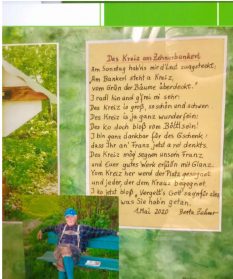 Das Kreiz am Zehnerbankerl
Am Sonstag hab'ns mir d'Leut zuagsteckt,
Am Bankerl steht a Kreiz,
vom Grün der Bäume überdeckt.
I radl hin und g'frei mi sehr:
Des Kreiz is groß, so schön und schwer.
Des Kreiz is ja ganz wunderfein:
Des ko doch bloß vom sein!
I bin ganz dankbar für des G'schenk,
dass Ihr an' Franz jetzt a no' denkts.
Des Kreiz mög segnen unsern Franz,
und Eier gutes Werk erfülln mit Glanz.
Vom Kreiz her werd der Platz gesegnet
und jeder, der dem Kreuz begegnet.
I ko jetzt bloß „Vergelt's Gott" sag'n für alles
was Sie hab'n getan.
1. Mai 2020 Berta Zehner